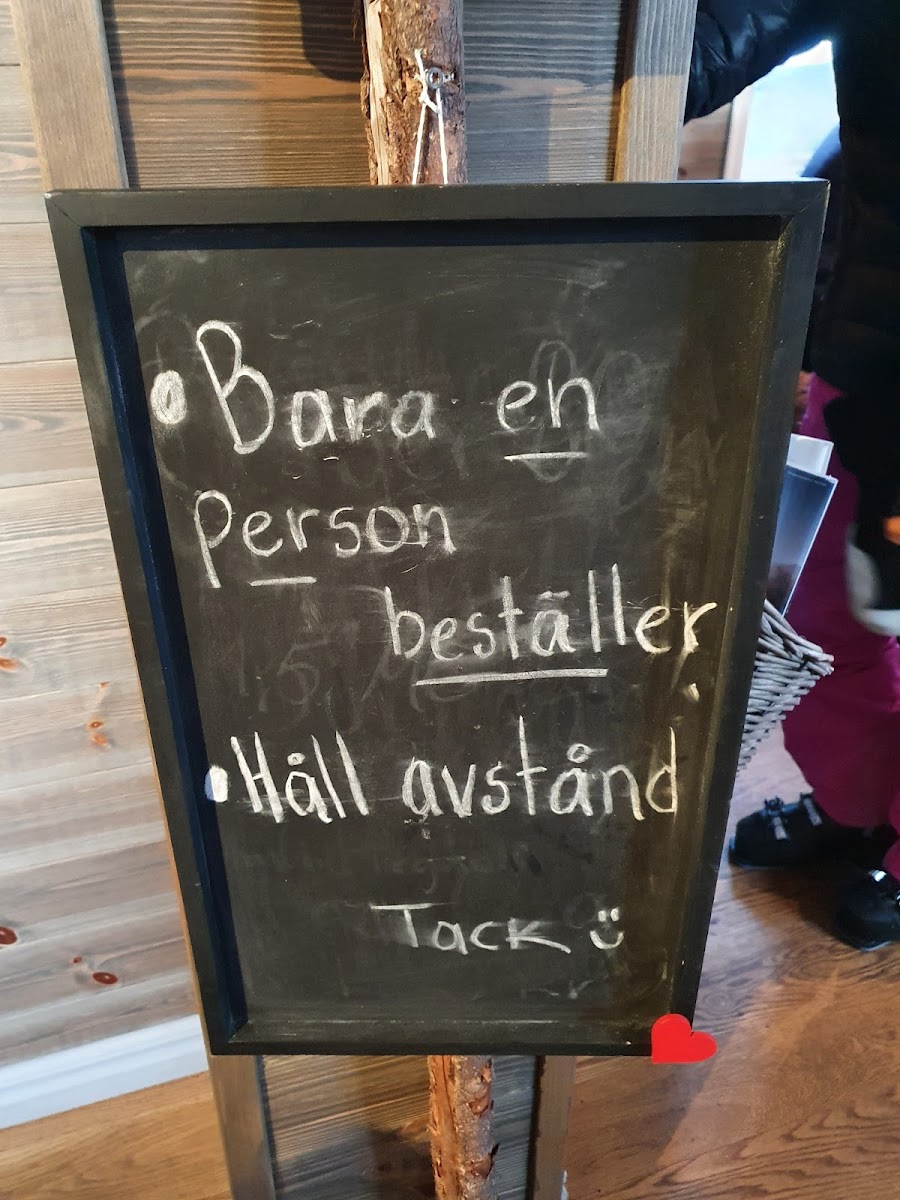 • Bara en
person
beställer
• Håll avstånd
Tack :)